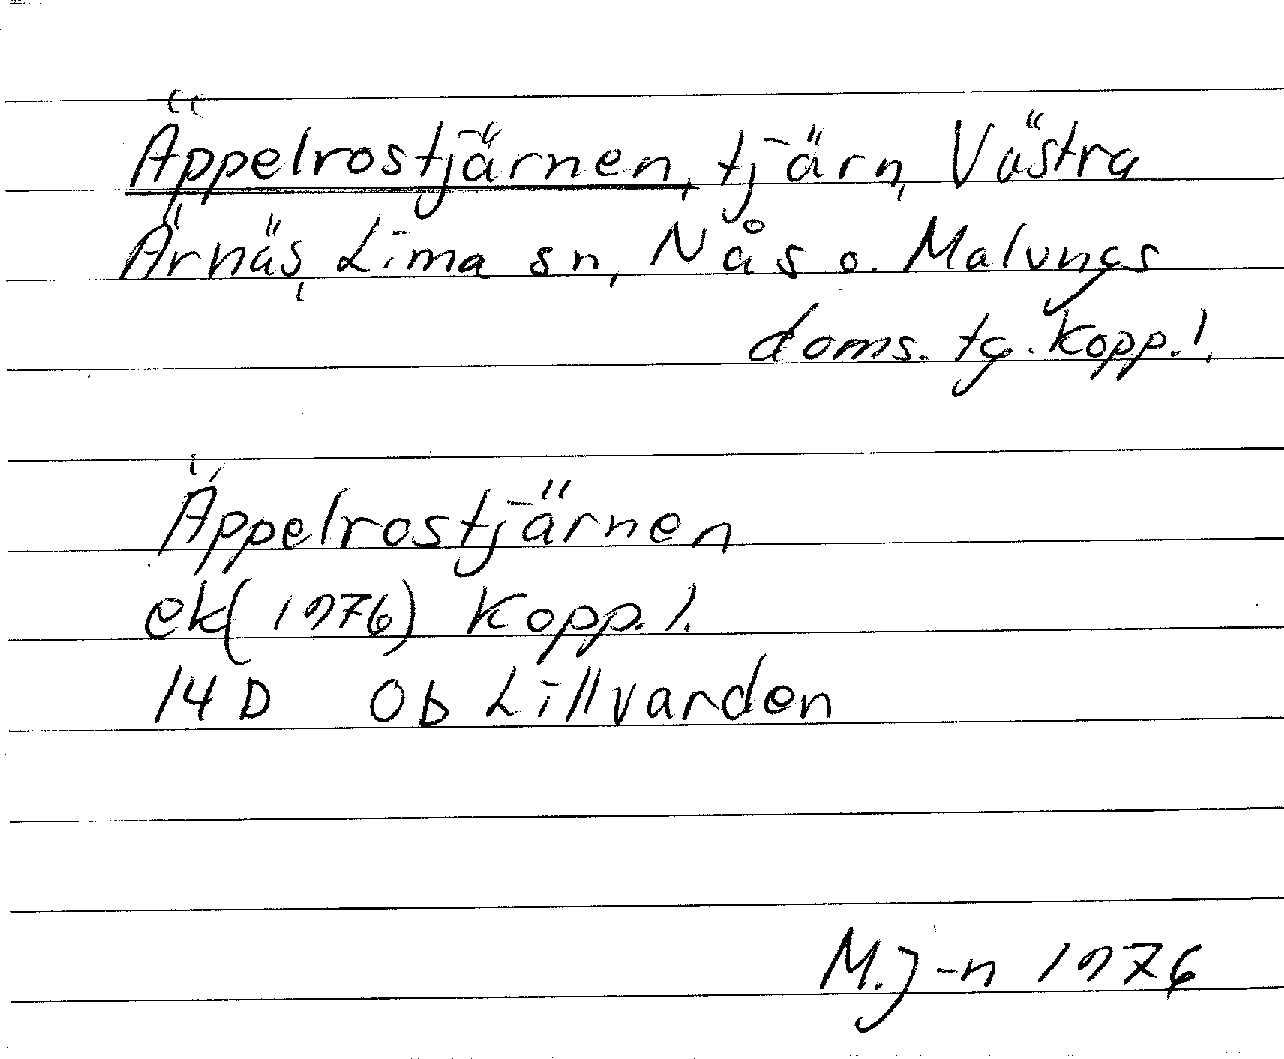 Äppelrostjärnen, tjärn, Västra
Ärnäs, Lima sn, Nås o. Malungs
doms. tg. Kopp. l.
Äppelrostjärnen
ek (1976) Kopp. l.
14 D Ob Lillvarden
M. J-n 1976